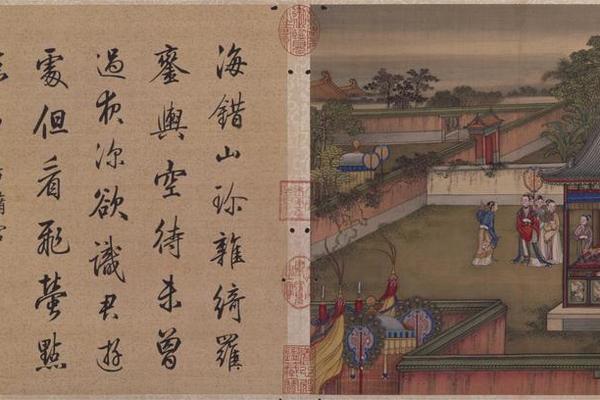 海錯山珎雜綺羅
鑾輿空待未曾
過夜深欲識君遊
處但看飛螢點